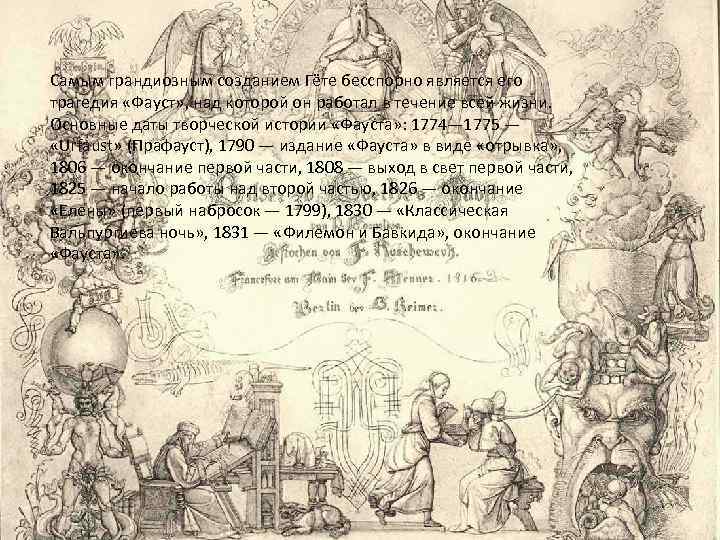 Самым грандиозным созданием Гёте бесспорно является его
трагедия «Фауст», над которой он работал в течение всей жизни.
Основные даты творческой истории «Фауста» : 1774—1775 —
«Urfaust» (Прафауст), 1790 — издание «Фауста» в виде «отрывка» ,
1806 — окончание первой части, 1808 — выход в свет первой части,
1825 — начало работы над второй частью, 1826 — окончание
«Елены» (первый набросок — 1799), 1830 — «Классическая
Вальпургиева ночь» , 1831 — «Филемон и Бавкида» , окончание
«Фауста» .
gestochen von F. Ruscheweyh.
Frankfurt am Main bey F. Wenner. 1816.
Berlin bey G. Reimer.